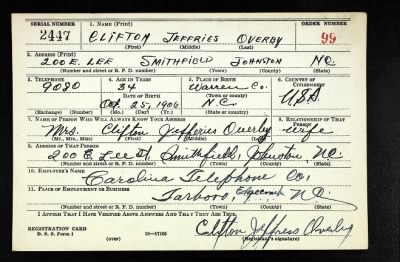 SERIAL NUMBER 1. NAME (Print) ORDER NUMBER
2447 CLIFTON JEFFRIES OVERBY 99
(First) (Middle) (Last)
2. ADDRESS (Print)
200 E. LEE SMITHFIELD JOHNSTON N.C.
(Number and street or R. F. D. number) (Town) (County) (State)
3. TELEPHONE 4. AGE IN YEARS 5. PLACE OF BIRTH 6. COUNTRY OF CITIZENSHIP
9080 34 Warren Co.
DATE OF BIRTH (Town or county)
Oct. 25, 1906 N.C. U.S.A.
(Exchange) (Number) (Mo.) (Day) (Yr.) (State or country)
7. NAME OF PERSON WHO WILL ALWAYS KNOW YOUR ADDRESS 8. RELATIONSHIP OF THAT PERSON
Mrs. Clifton Jefferies Overby wife
(Mr., Mrs., Miss) (First) (Middle) (Last)
9. ADDRESS OF THAT PERSON
200 E. Lee St. Smithfield, Johnston, N.C.
(Number and street or R. F. D. number) (Town) (County) (State)
10. EMPLOYER'S NAME
Carolina Telephone Co.
11. PLACE OF EMPLOYMENT OR BUSINESS
Tarboro, Edgecomb N.C.
(Number and street or R. F. D. number) (Town) (County) (State)
I AFFIRM THAT I HAVE VERIFIED ABOVE ANSWERS AND THAT THEY ARE TRUE.
REGISTRATION CARD
D. S. S. Form 1 (over) 16—17105 Clifton Jeffress Overby
(Registrant's signature)